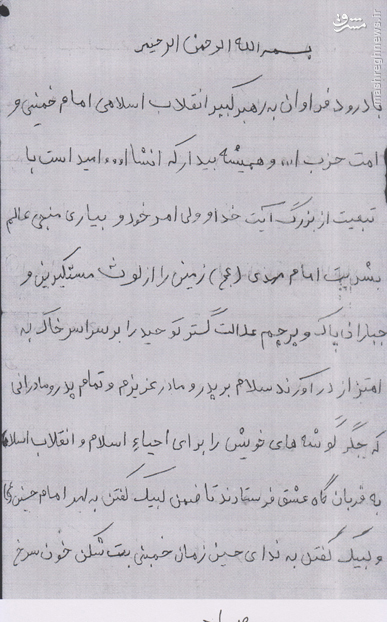 مشرق
mashreghnews.ir
بسمه الله الرحمن الرحیم
با درود فراوان به رهبر کبیر انقلاب اسلامی امام خمینی و
امت حزب الله و همیشه بیدار که انشاا... امید است با
تبعیت از بزرگ آیت خدا و ولی امر خود و بیاری منجی عالم
بشریت امام مهدی (عج) زمین را از لوث مستکبرین و
جباران پاک و پرچم عدالت گستر توحید را بر سراسر خاک به
اهتزاز در آورند سلام بر پدر و مادر عزیزم و تمام پدر و مادرانی
که جگر گوشه های خویش را برای احیاء اسلام و انقلاب اسلامی
به قربان گاه عشق فرستادند تا ضمن لبیک گفتن به امام حسین
و لبیک گفتن به ندای حسین زمان خمینی بت شکن خون سرخ